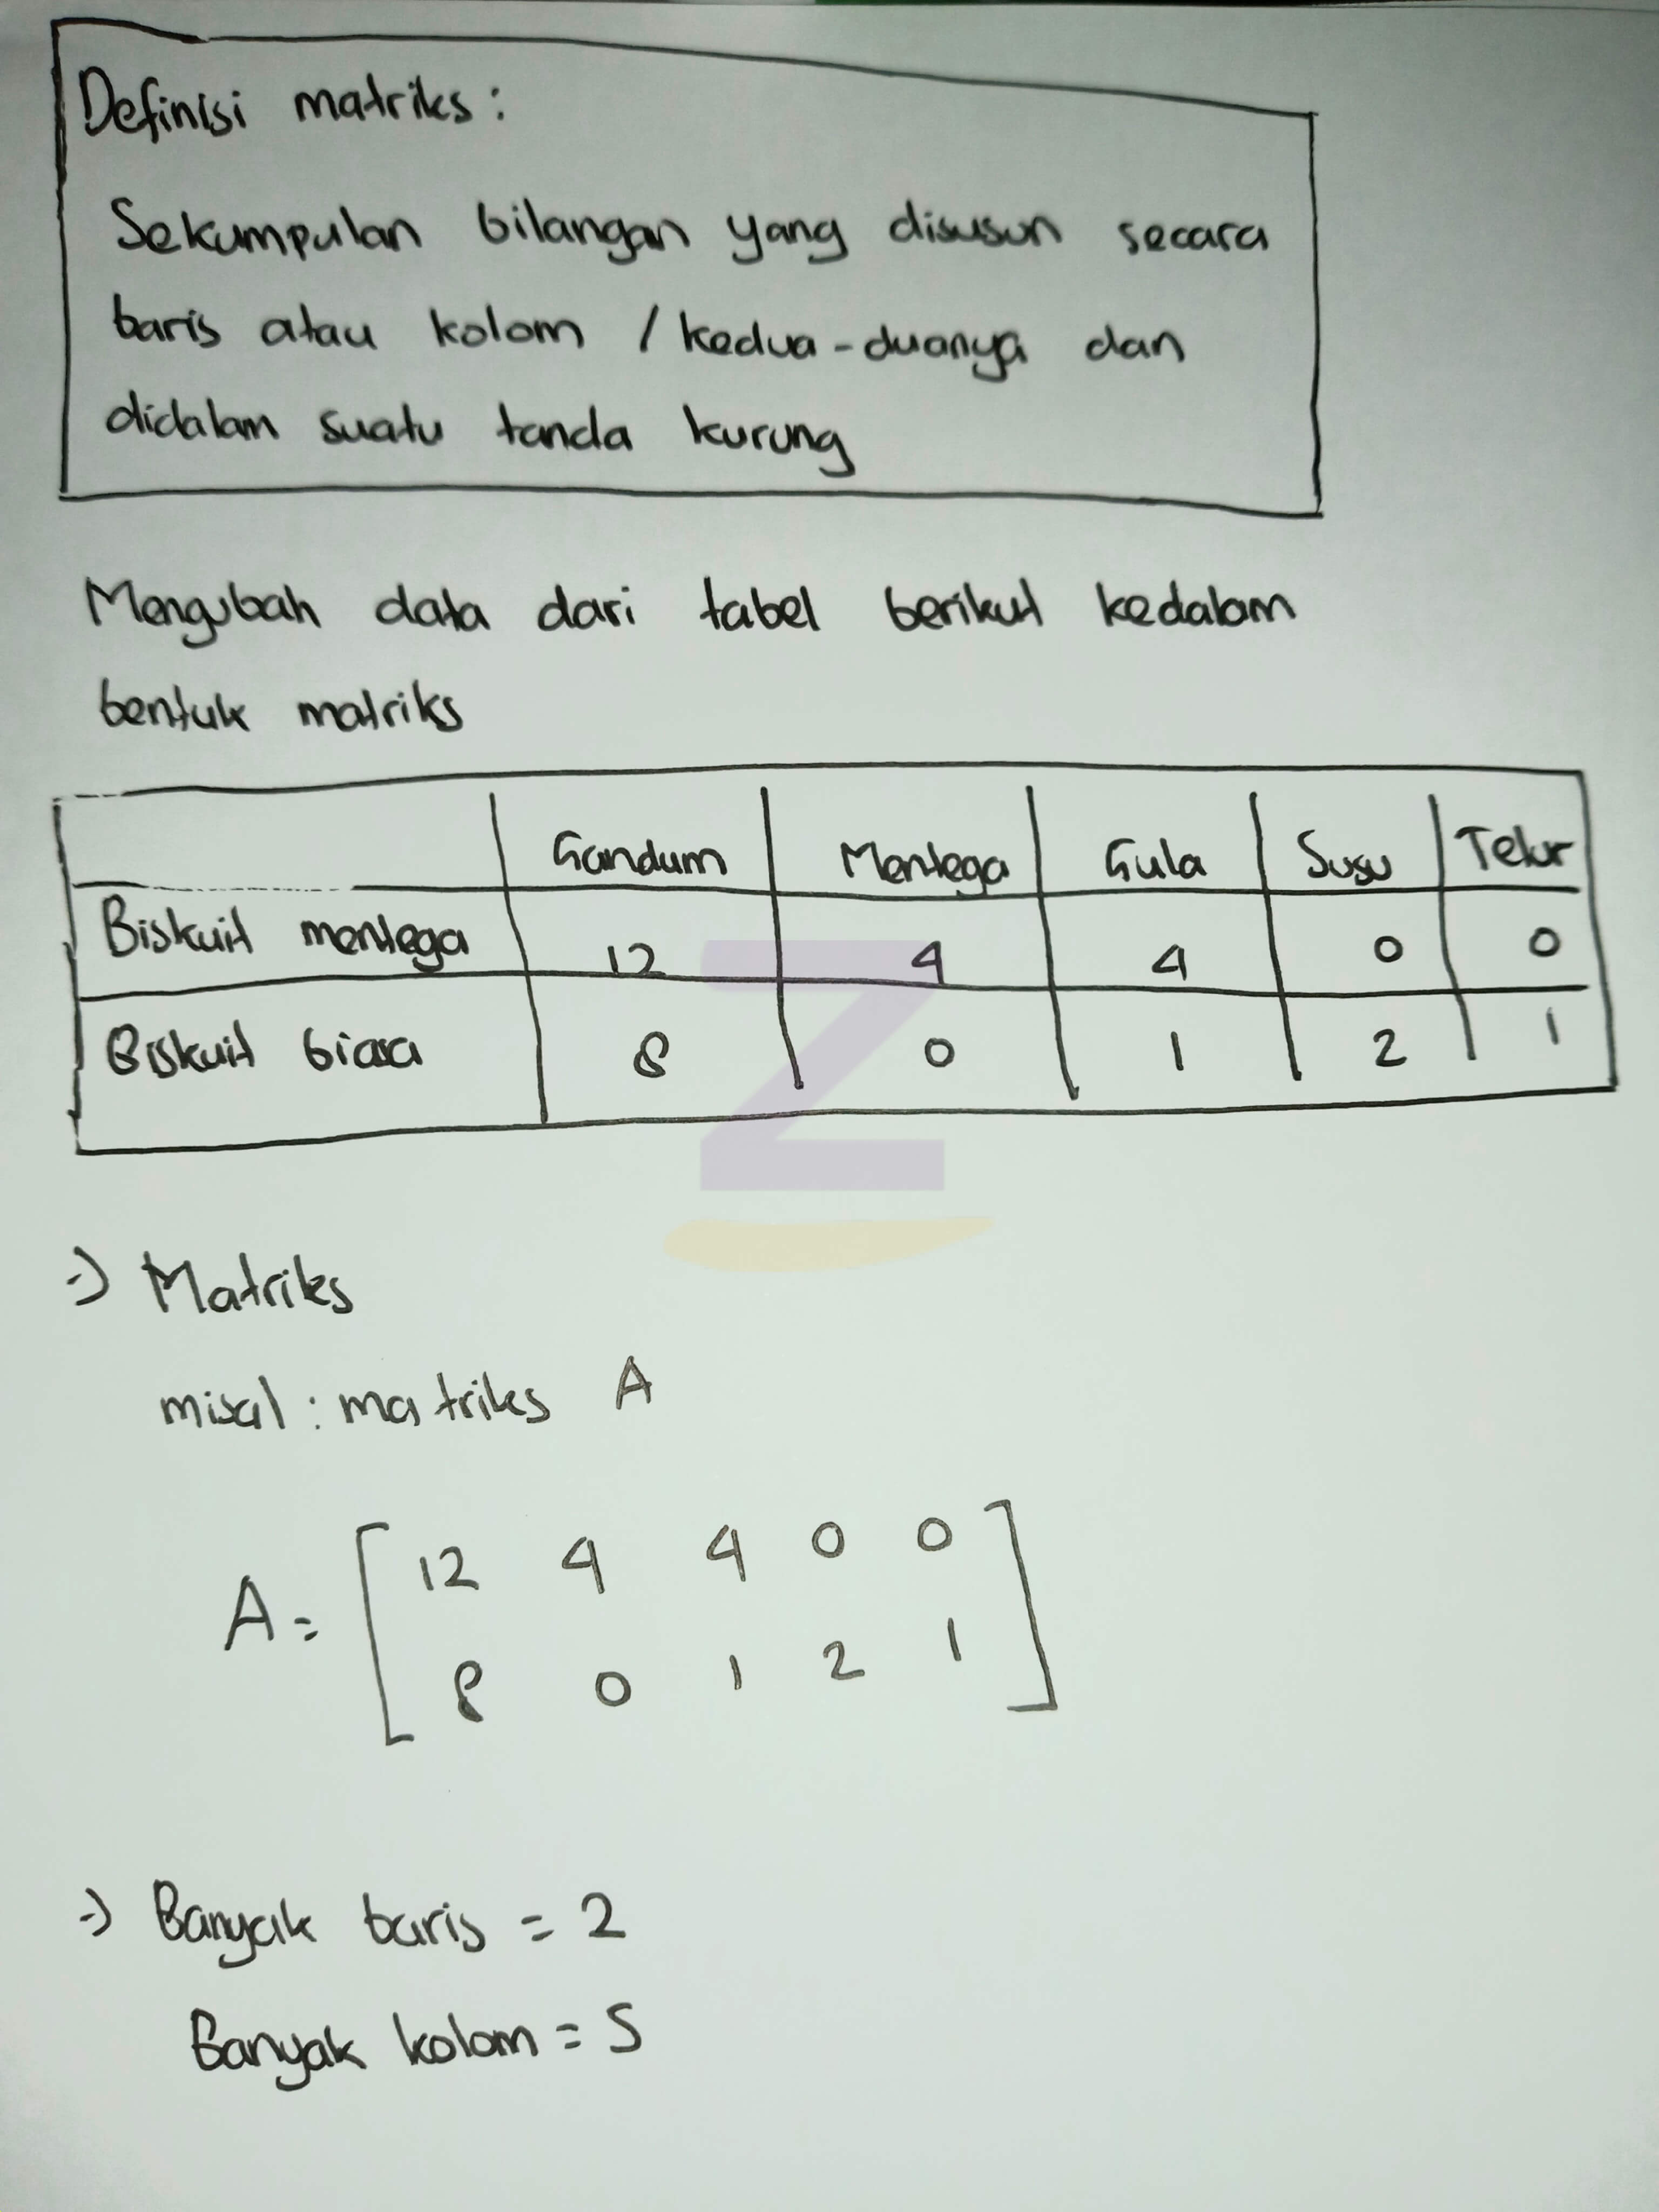 Definisi matriks :
Sekumpulan bilangan yang disusun secara
baris atau kolom / kedua-duanya dan
didalam suatu tanda kurung
Mengubah data dari tabel berikut kedalam
bentuk matriks
Gandum Mentega Gula Susu Telur
Biskuit mentega 12 4 4 0 0
Biskuit biasa 8 0 1 2 1
Z
→) Matriks
misal : matriks A
A = [ 12 4 4 0 0
8 0 1 2 1 ]
→) Banyak baris = 2
Banyak kolom = 5